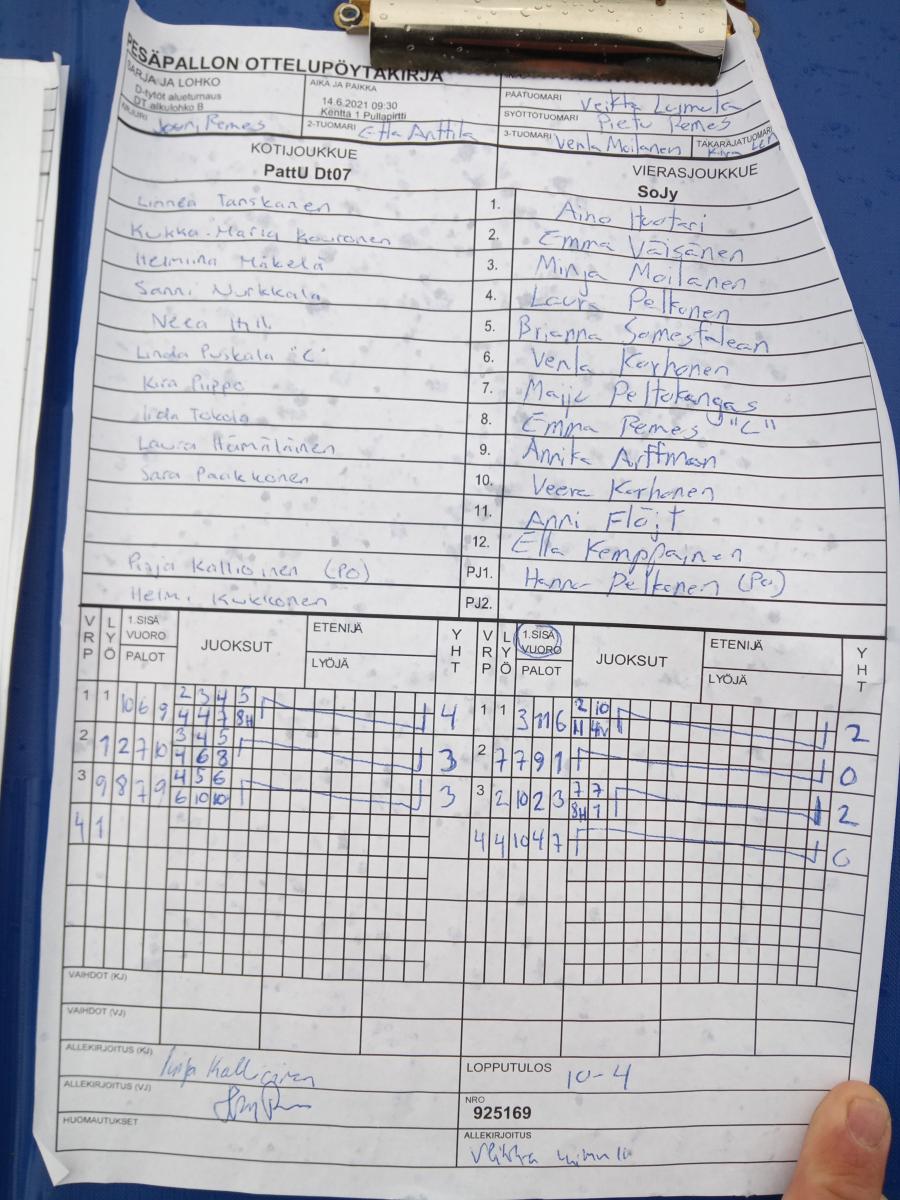 PESÄPALLON OTTELUPÖYTÄKIRJA
SARJA JA LOHKO
D-tytöt alueturnaus
DT alkulohko B
AIKA JA PAIKKA
14.6.2021 09:30
Kenttä 1 Pullapirtti
PÄÄTUOMARI Veikka
SYÖTTÖTUOMARI Pietu Remes
Jouni Remes
2-TUOMARI Etla Anttila
3-TUOMARI Venla Moilanen
TAKARAJATUOMARI
KOTIJOUKKUE
PattU Dt07
VIERASJOUKKUE
SoJy
Linnea Tanskanen 1. Aino Huotari
Kukka-Maria Kouronen 2. Emma Väisänen
Helmiina Mäkelä 3. Minja Moilanen
Sanni Nurkkala 4. Laura Pelkonen
Neea 5. Brianna
Linda Puskala "C" 6. Venla Korhonen
Kira Piippo 7. Maiju Peltokangas
Iida Tokola 8. Emma Remes "C"
Laura Hämäläinen 9. Annika Arffman
Sara Paakkonen 10. Veera Korhonen
11. Anni Flöjt
12. Ella Kemppainen
Pinja Kallioinen (PO) PJ1. Hanna Pelkonen (Po)
Helmi Kukkonen PJ2.
VRP LYÖ 1.SISÄ VUORO PALOT JUOKSUT ETENIJÄ LYÖJÄ YHT VRP LYÖ 1.SISÄ VUORO PALOT JUOKSUT ETENIJÄ LYÖJÄ YHT
1 1 10 6 9 2 3 4 5 4 1 1 3 11 6 2 10 2
4 4 7 8H 11
2 1 2 7 10 3 4 5 3 2 7 7 9 1 0
4 6 8
3 9 8 7 9 4 5 6 3 3 2 10 2 3 7 7 2
6 10 10 8H 1
4 1 4 4 10 4 7 0
VAIHDOT (KJ)
VAIHDOT (VJ)
ALLEKIRJOITUS (KJ) Pinja Kallioinen
LOPPUTULOS 10-4
ALLEKIRJOITUS (VJ)
NRO
925169
HUOMAUTUKSET
ALLEKIRJOITUS